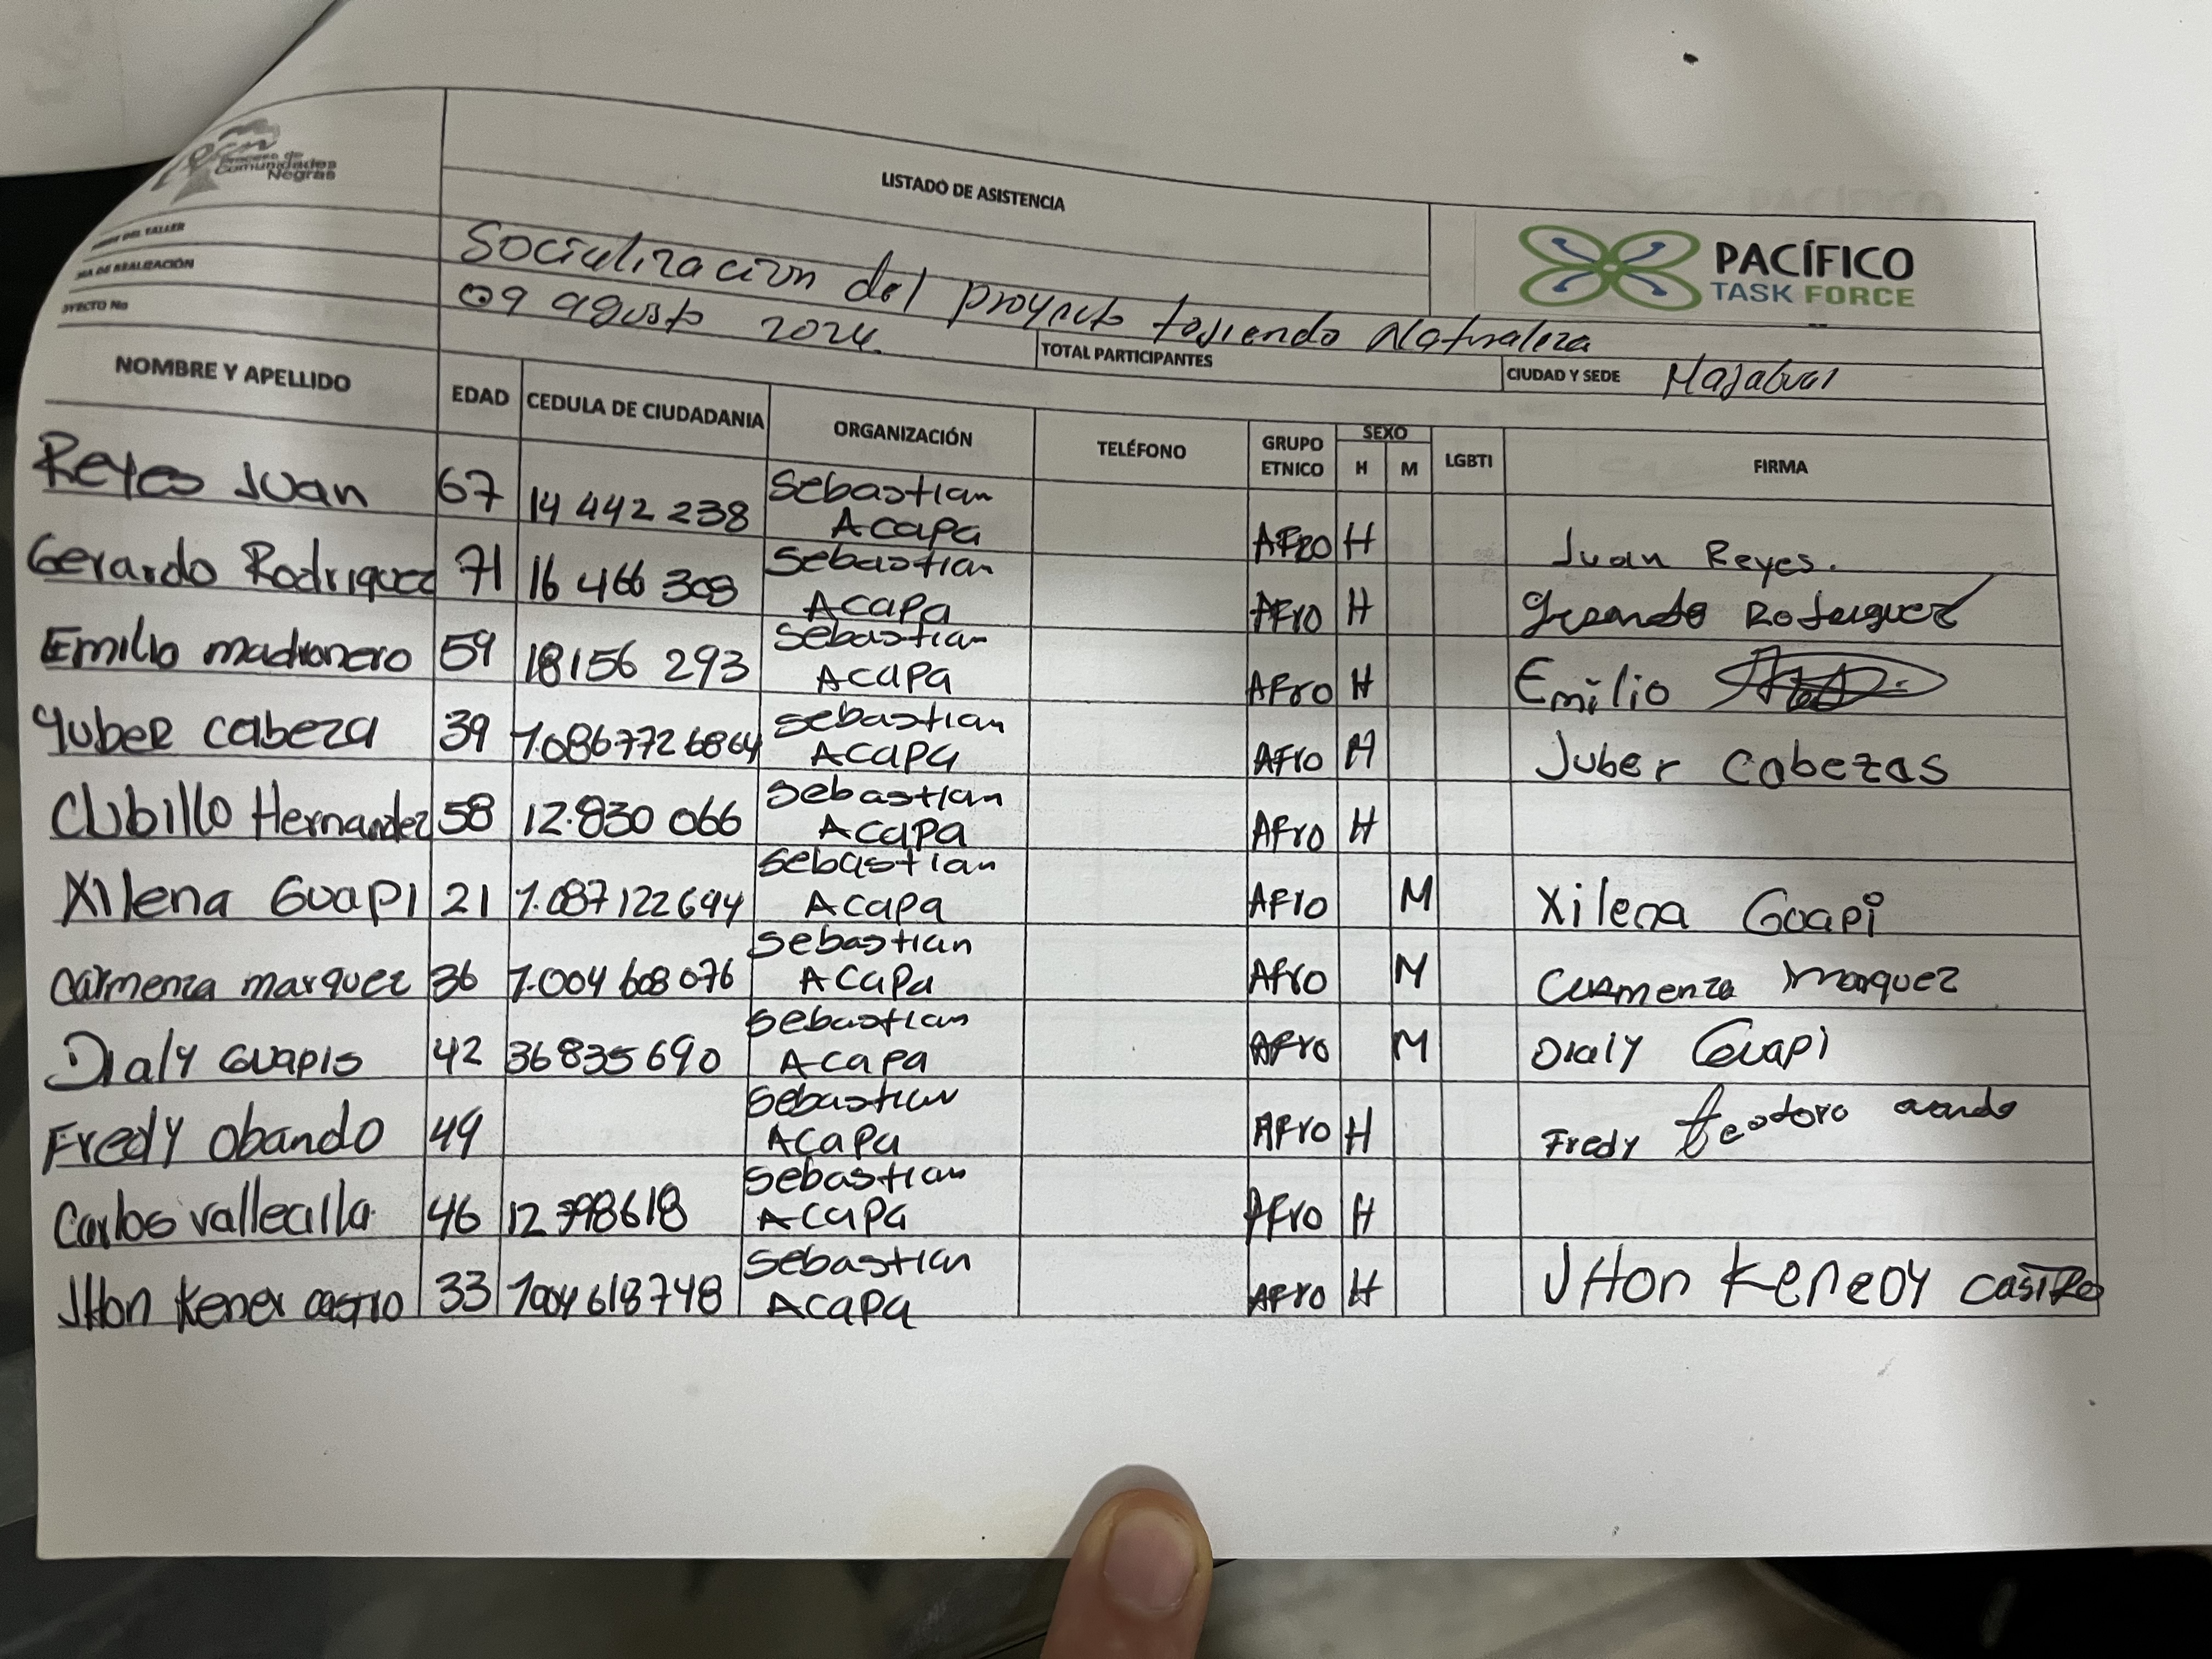 Proceso de
Comunidades
Negras
LISTADO DE ASISTENCIA
PACÍFICO
TASK FORCE
DEL TALLER
Socialización del proyecto tejiendo Naturaleza
DE REALIZACIÓN
09 agusto 2024.
OYECTO No
TOTAL PARTICIPANTES
CIUDAD Y SEDE
NOMBRE Y APELLIDO EDAD CEDULA DE CIUDADANIA ORGANIZACIÓN TELÉFONO GRUPO ETNICO SEXO H M LGBTI FIRMA
Reyes Juan 67 14 442 238 Sebastian Acapa AFRO H Juan Reyes.
Gerardo Rodriguez 71 16 466 303 Sebastian Acapa AFro H Gerardo
Emilio madronero 59 18156 293 Sebastian Acapa AFro H Emilio
Yuber cabeza 39 Sebastian Acapa AFro H Juber Cabezas
Cubillo Hernandez 58 12.830 066 Sebastian Acapa AFro H
Xilena Guapi 21 1.087122694 Sebastian Acapa AFro M Xilena Guapi
Carmenza marquez 36 1.004 608 076 Sebastian Acapa AFro M Carmenza Marquez
Dialy Guapis 42 36835690 Sebastian Acapa AFro M Dialy Guapi
Fredy obando 49 Sebastian Acapa AFro H Fredy teodoro
Carlos vallecilla 46 12 798618 Sebastian Acapa AFro H
JHon Kener castro 33 1004 618748 Sebastian Acapa AFro H JHon Kenedy CASTRO